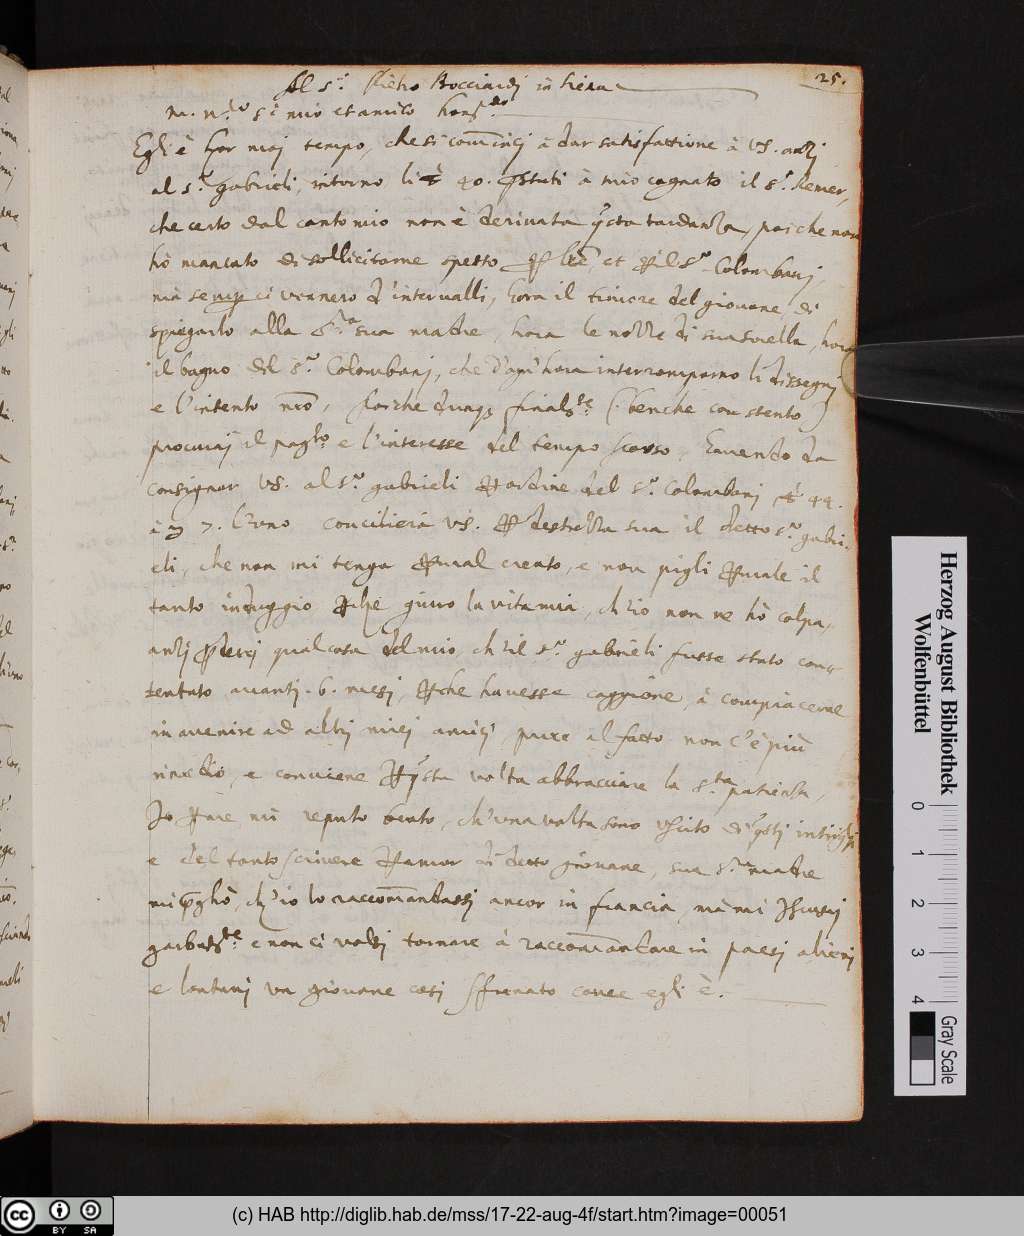 25.
Al S.r Pietro Bocciardj in Siena
M. n.to S.r mio et amico hon.do
Egli è hor maj tempo, che si comincj à dar satisfattione à VS. anzj
al S.r gabrieli, intorno li 40. prestati à mio cognato il S.r Remer,
che certo dal canto mio non è derivata questa tardanza, poiche non
hò mancato di sollicitarne spesso per lre, et per il S.r Colombanj,
mà sempre ci vennero d'intervalli, hora il timore del giovane, di
spiegarlo alla S.ra sua madre, hora le nozze di sua sorella, hora
il bagno del S.r Colombanj, che d'ogn'hora interromparno li dissegnj
e l'intento nro, Poiche dunque finalmte (benche con stento)
procuraj il pagto e l'interesse del tempo scorso, havendo da
consignar VS. al S.r gabrieli per ordine del S.r Colombanj 44.
à 7. l'uno conciliera VS. per destrezza sua il detto S.r gabri-
eli, che non mi tenga per mal creato, e non pigli per male il
tanto induggio perche giuro la vita mia, ch'io non ne hò colpa,
anzj perderej qualcosa del mio, ch'il S.r gabrieli fusse stato con-
tentato avantj 6. mesj, perche havesse caggione, à compiacerne
in avenire ad altrj miej amicj, pure al fatto non c'è più
rimedio, e conviene per questa volta abbracciare la S.ta patienza,
Io per me mi reputo beato, ch'una volta sono uscito di questj intrighj
e del tanto scrivere per amor di detto giovane, sua S.ra madre
mi pregò, ch'io lo raccomandassj ancor in francia, mà mi scusaj
garbatmte e non ci volsj tornare à raccomandare in paesj alienj
e lontanj un giovane cosj sfrenato come egli è.
Herzog August Bibliothek
Wolfenbüttel
0 1 2 3 4
Gray Scale
cc BY SA
(c) HAB http://diglib.hab.de/mss/17-22-aug-4f/start.htm?image=00051